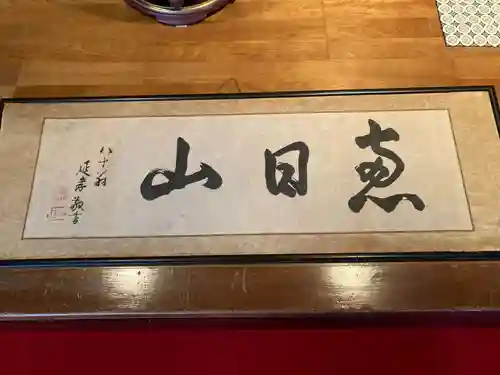 恵日山
八十翁
延寿 敬書